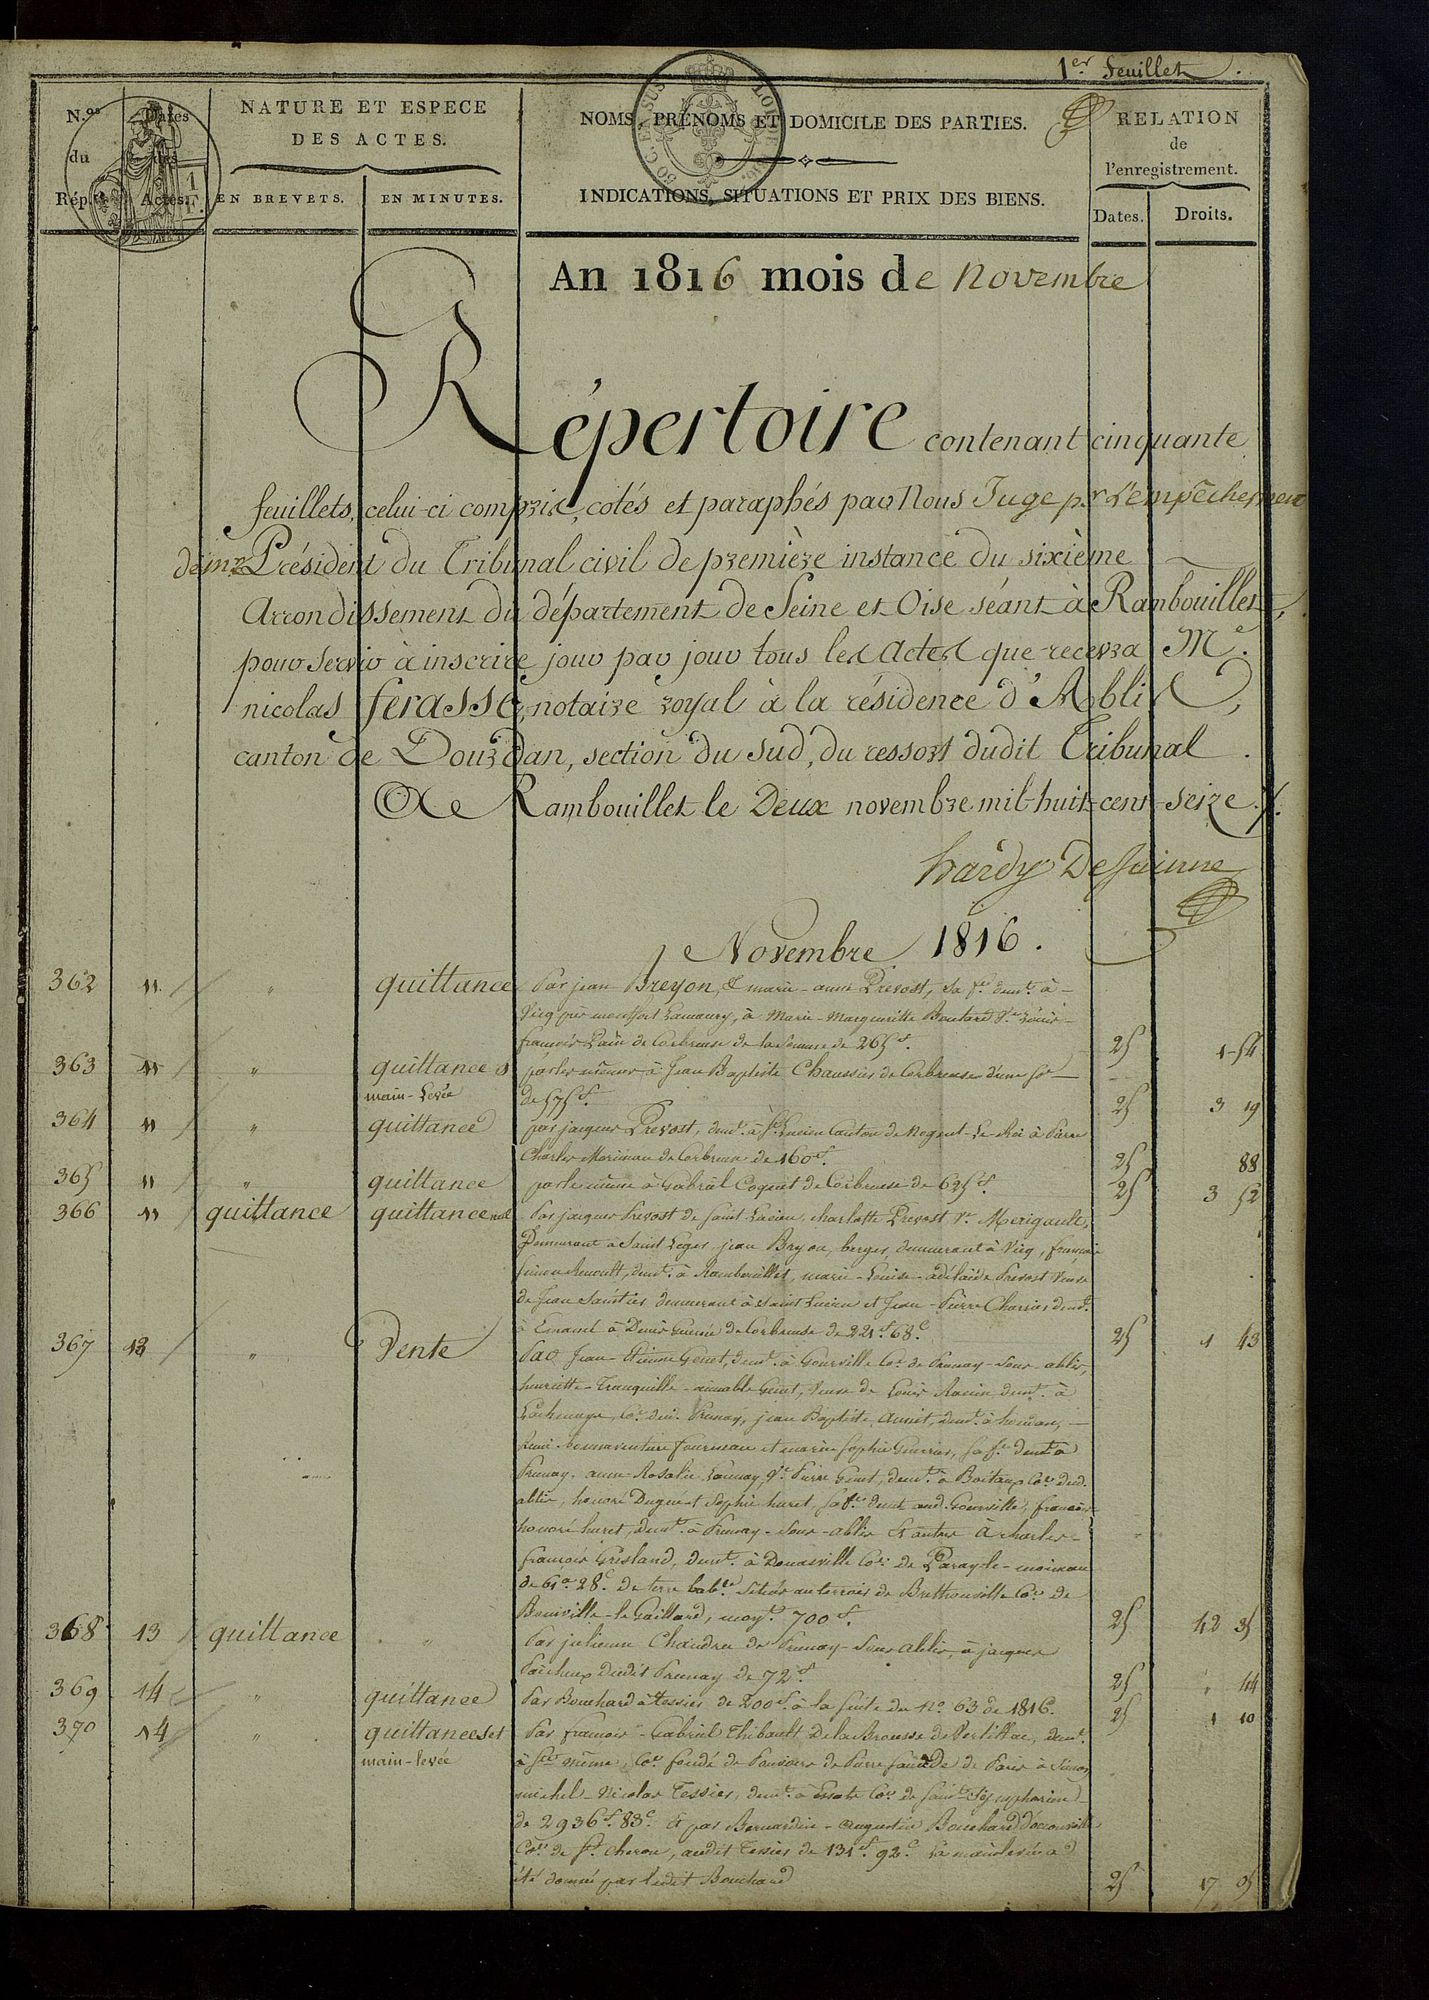 1er feuillet.
N.os du Rép.re
Dates des Actes.
NATURE ET ESPECE DES ACTES.
EN BREVETS.
EN MINUTES.
NOMS, PRÉNOMS ET DOMICILE DES PARTIES.
INDICATIONS, SITUATIONS ET PRIX DES BIENS.
RELATION de l'enregistrement.
Dates.
Droits.
An 1816 mois de Novembre
Répertoire contenant cinquante
feuillets, celui-ci compris, cotés et paraphés par Nous Juge pr. l'empêchement
de mr Président du Tribunal civil de première instance du sixième
Arrondissement du département de Seine et Oise séant à Rambouillet,
pour servir à inscrire jour par jour tous les actes que recevra Me.
nicolas ferasse, notaire royal à la résidence d'Ablis,
canton de Dourdan, section du Sud, du ressort dudit Tribunal.
Rambouillet le Deux novembre mil-huit-cent-seize
hardy
Novembre 1816.
362 11 " quittance Par jean Breyon, & marie-anne Prevost, sa fe. demt. à
Vicq près montfort Lamaury, à Marie-Marguerite Boutard Ve. Louis
françois Pain de Corbreuse de la somme de 265f. 25 1 54
363 11 " quittances par les mêmes à Jean Baptiste Chaussier de Corbreuse d'une
main-Levée de 575f. 25 3 19
364 11 " quittance par jacques Prevost, demt. à St. Lucien Canton de Nogent-Le-Roi à Pierre
Charles de Corbreuse de 160f. 25 88
365 11 " quittance par le même à Gabriel Coquet de Corbreuse de 625f. 25 3 52
366 11 quittance quittance Par jacques Prevost de Saint Lucien, charlotte Prevost Ve. Merigault,
Demeurant à Saint Léger, jean Bryon, berger, demeurant à Vicq, françois
simon Renoult, demt. à Rambouillet, marie-Louise-adélaïde Prevost Veuve
de Jean demeurant à Saint Lucien et Jean-Pierre Charrier demt.
à à Denis de Corbreuse de 221f. 68c. 25 1 43
367 12 " Vente Par Jean Etienne Genet, demt. à Gourville Cne. de Prunay-sous-ablis,
henriette-Tranquille-aimable Genet, Veuve de Louis demt. à
Cne. dud. Prunay, jean Baptiste demt. à
bonnaventure fourneau et marie sophie sa fe. demt. à
Prunay. anne Rosalie Launay, Ve. Pierre Genet, demt. à Boitaux Cne. dud.
ablis, honoré et Sophie huret, sa fe. demt. aud. Gourville, françois
honoré huret, demt. à Prunay-sous-ablis & autres à charles-
françois Grisland, demt. à Douasville Cne. de Paray-le-moineau
de 61a. 28c. de terre labble. située au terroir de Brethouville Cne. de
Boinville-le-Gaillard, moyt. 700f. 25 12 35
368 13 quittance " Par julienne Chaudru de Prunay-sous ablis, à jacques
dudit Prunay de 72f. 25 " 44
369 14 " quittance Par Bouchard à Tessier de 200f. à la suite du No. 63 de 1816. 25 1 10
370 14 " quittances et Par françois-Gabriel Thibault De la Brousse de Vertillac, demt.
main-levée à Ste. même, Cne. fondé de Pouvoirs de Pierre de Paris à Simon
michel Nicolas Tessier, demt. à Cne. de Saint Symphorien
de 2936f. 83c. Et par Bernardin-augustin Bouchard
Cne. de St. cheron, audit Tessier de 131f. 92c. La mainlevée a
été donné par ledit Bouchard 25 17 05